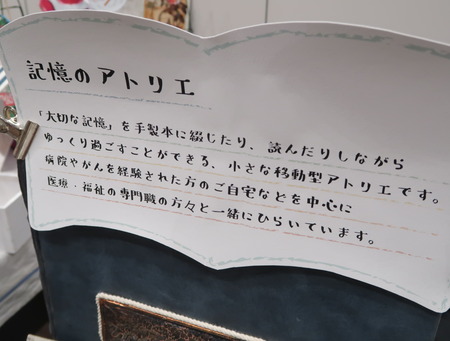 記憶のアトリエ
「大切な記憶」を手製本に綴じたり、読んだりしながら
ゆっくり過ごすことができる、小さな移動型アトリエです。
病院やがんを経験された方のご自宅などを中心に
医療・福祉の専門職の方々と一緒にひらいています。